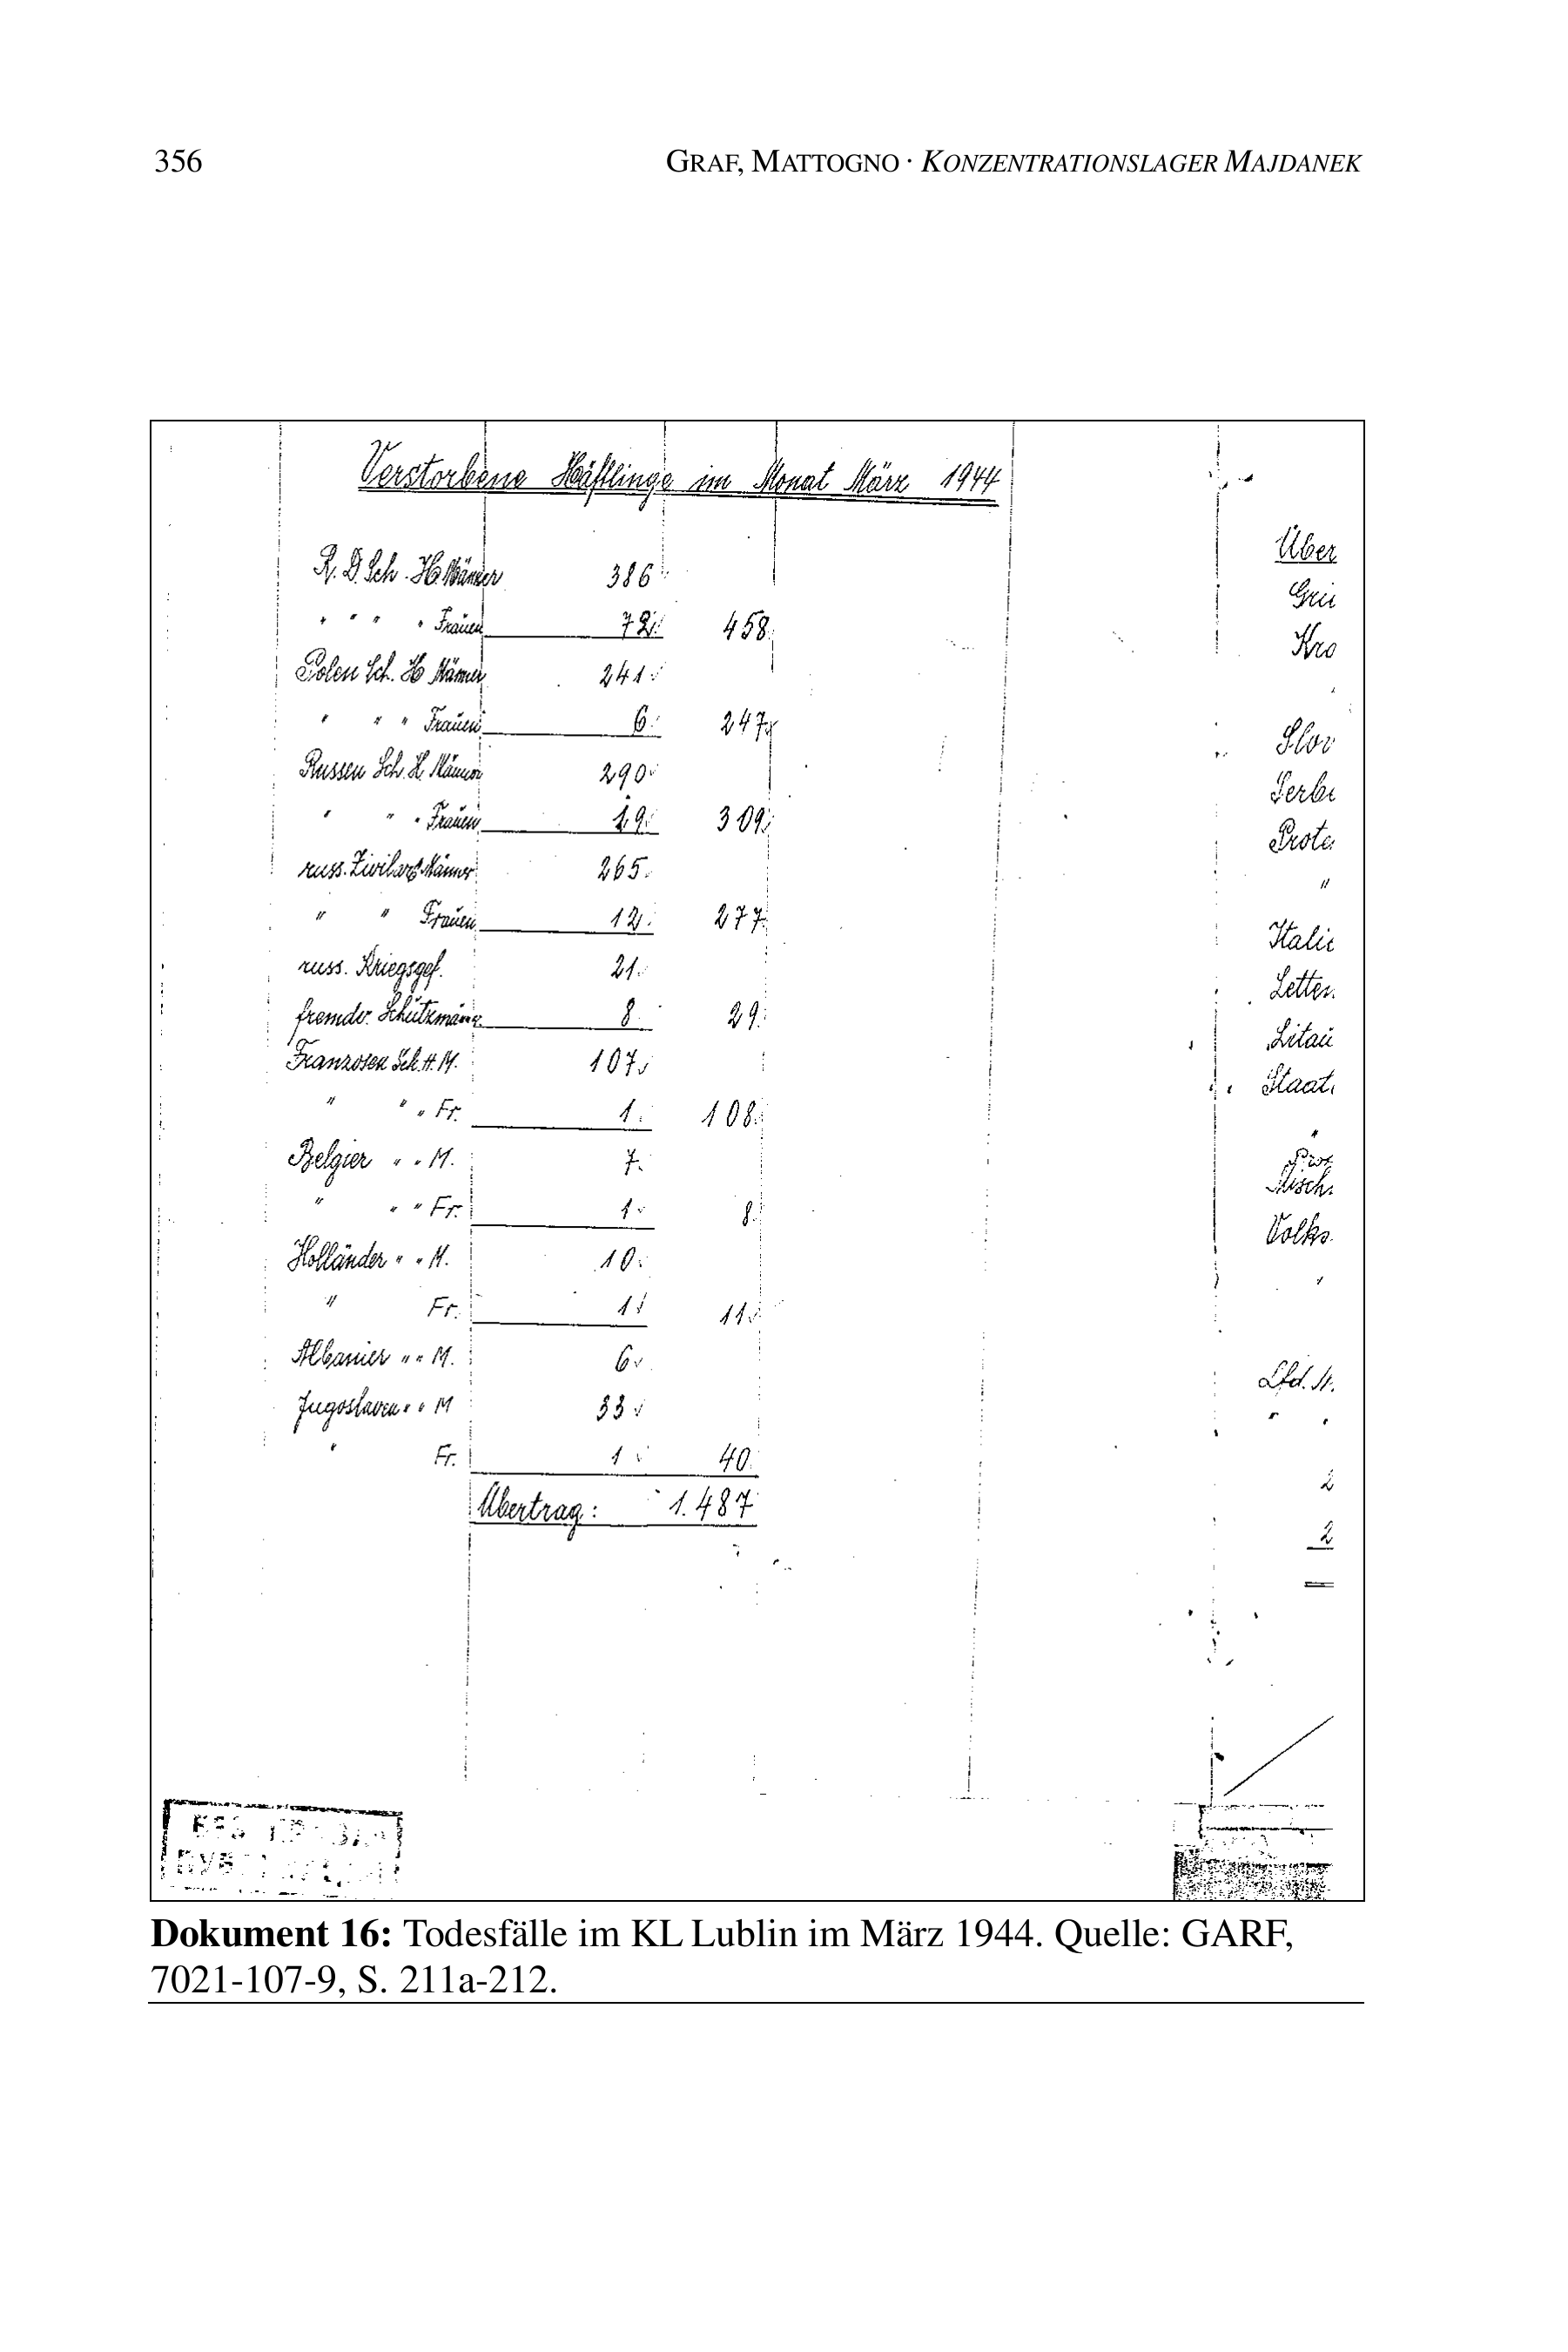 356
GRAF, MATTOGNO · KONZENTRATIONSLAGER MAJDANEK
Verstorbene Häftlinge im Monat März 1944
R. D. Sch. H. Männer 386
" " " " Frauen 72 458
Polen Sch. H Männer 241
" " " Frauen 6 247
Russen Sch. H. Männer 290
" " " Frauen 19 309
russ. Zivilarb. Männer 265
" " Frauen 12 277
russ. Kriegsgef. 21
fremdv. Schutzmänn. 8 29
Franzosen Sch. H. M. 107
" " " Fr. 1 108
Belgier " " M. 7
" " " Fr. 1 8
Holländer " " M. 10
" Fr. 1 11
Albanier " " M. 6
Jugoslaven " " M 33
" Fr. 1 40
Übertrag: 1.487
Über
Grie
Kro
"
Slov
Serbi
Prote
"
Italie
Letten
Litau
Staat
"
Misch
Volks
"
Lfd. N.
" "
2
2
Dokument 16: Todesfälle im KL Lublin im März 1944. Quelle: GARF,
7021-107-9, S. 211a-212.